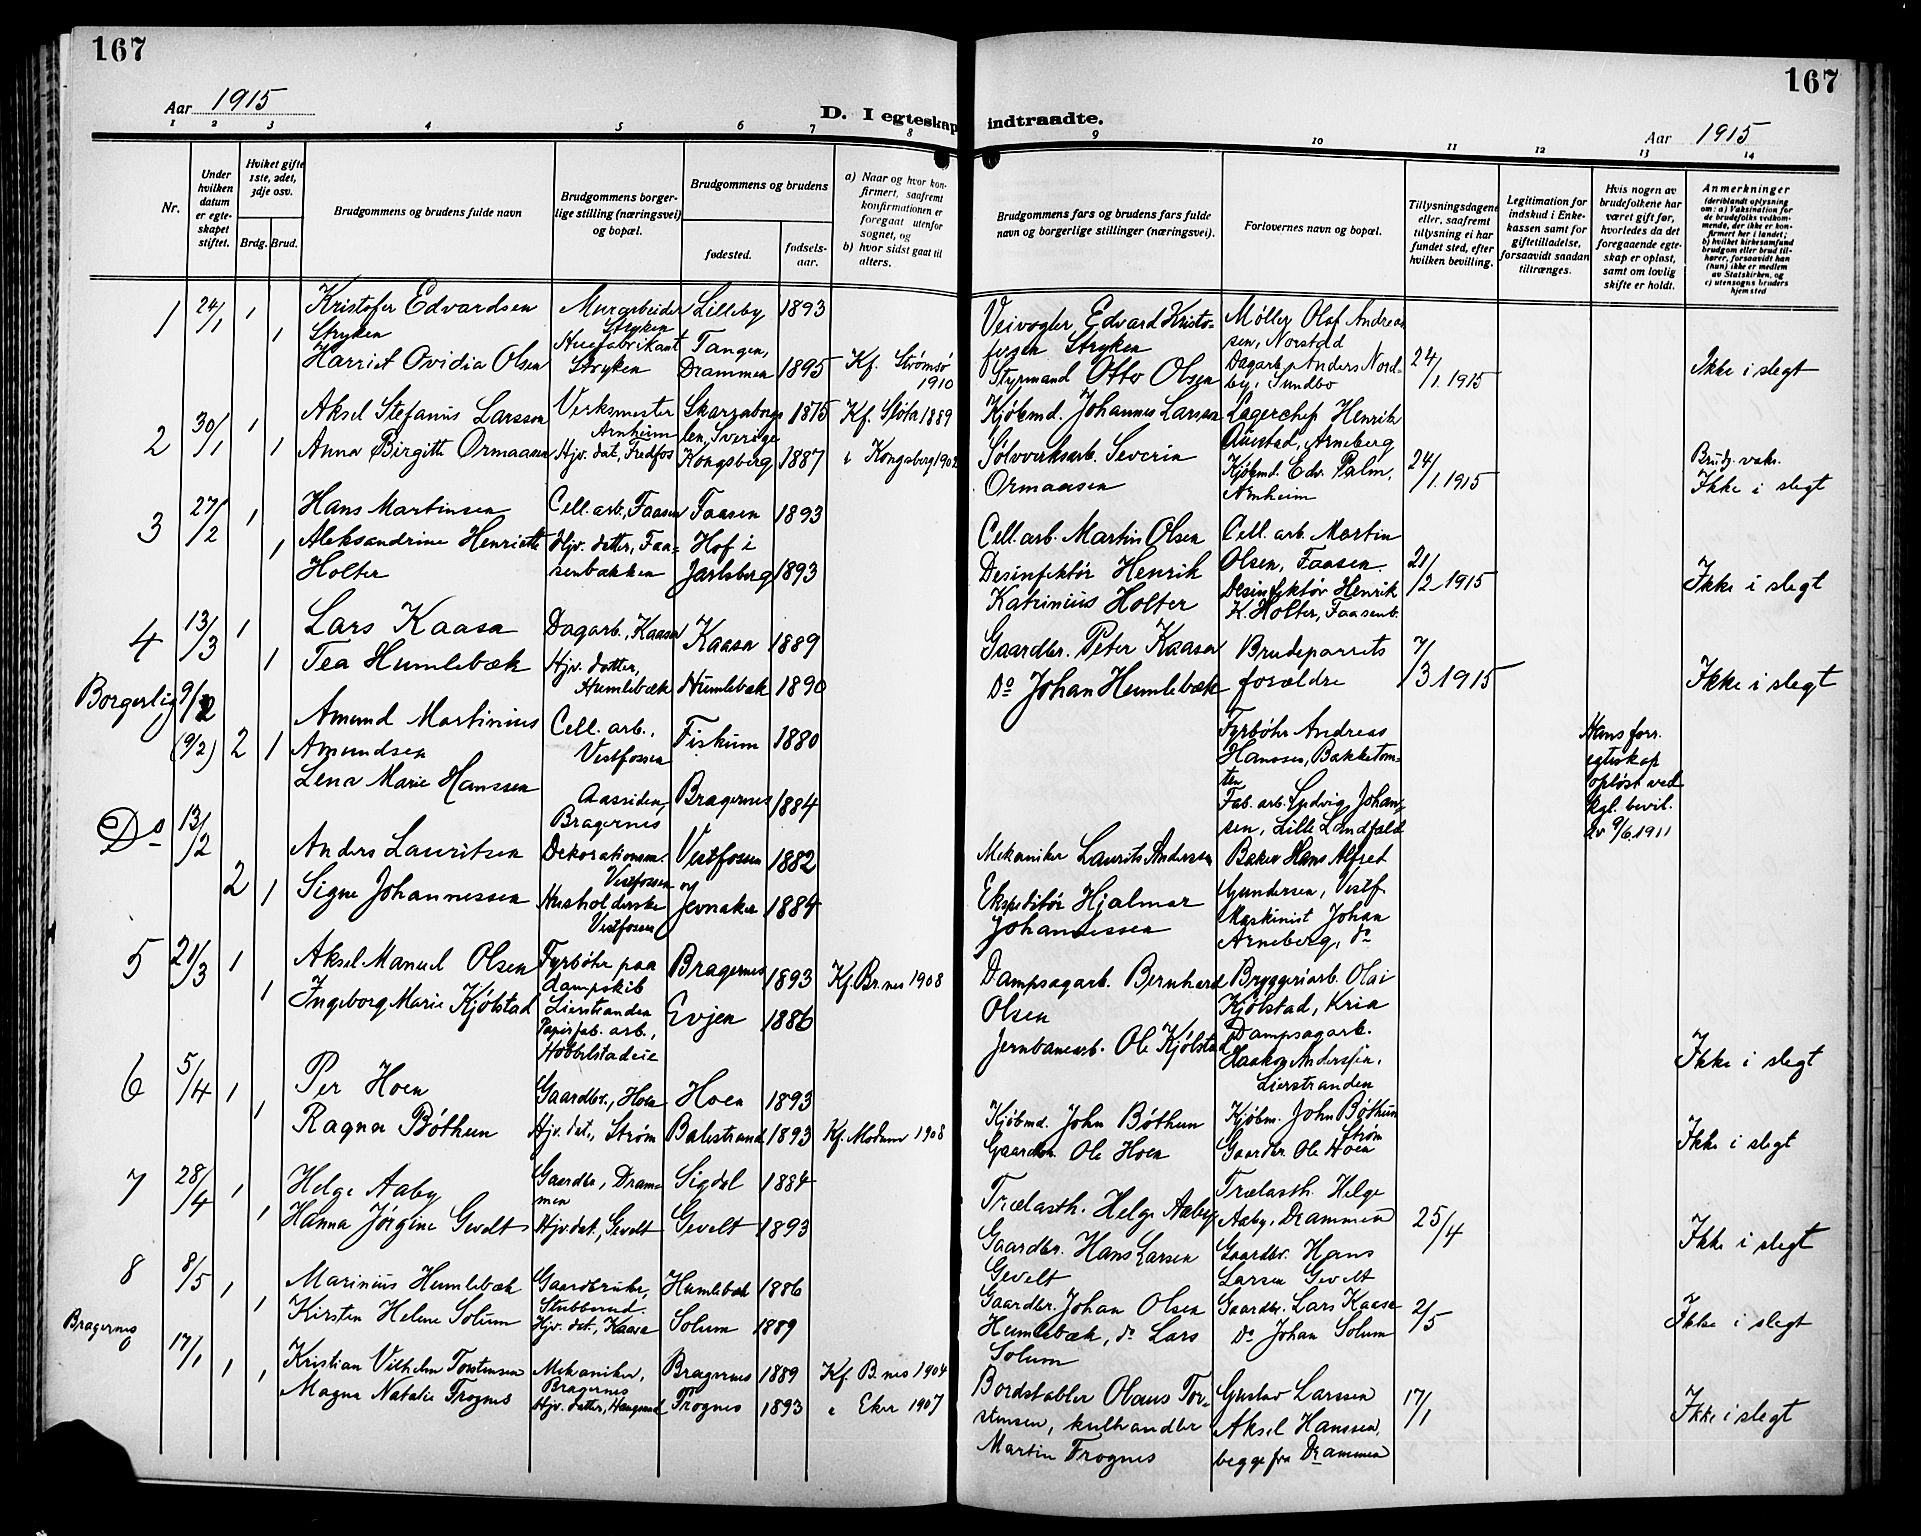 167
167
Aar 1915
D. I egteskap indtraadte.
Aar 1915
1 2 3 4 5 6 7 8 9 10 11 12 13 14
Nr.
Under hvilken datum er egteskapet stiftet.
Hvilket gifte 1ste, 2det, 3dje osv.
Brdg. Brud.
Brudgommens og brudens fulde navn
Brudgommens borgerlige stilling (næringsvei) og bopæl.
Brudgommens og brudens
fødested.
fødselsaar.
a) Naar og hvor konfirmert, saafremt konfirmationen er foregaat utenfor sognet, og
b) hvor sidst gaat til alters.
Brudgommens fars og brudens fars fulde navn og borgerlige stillinger (næringsvei).
Forlovernes navn og bopæl.
Tillysningsdagene eller, saafremt tillysning ei har fundet sted, efter hvilken bevilling.
Legitimation for indskud i Enkekassen samt for giftetilladelse, forsaavidt saadan tiltrænges.
Hvis nogen av brudefolkene har været gift før, hvorledes da det foregaaende egteskap er opløst, samt om lovlig skifte er holdt.
Anmerkninger (deriblandt oplysning om: a) Vaksination for de brudefolks vedkommende, der ikke er konfirmert her i landet; b) hvilket kirkesamfund brudgom eller brud tilhører, forsaavidt han (hun) ikke er medlem av Statskirken, og c) utensogns bruders hjemsted
1 24/1 1 Kristofer Edvardsen Murarbeider Lilleby 1893
Stryken Stryken
1 Harriet Ovidia Olsen Stryken Tangen, Drammen 1895 Kf. Strømsø 1910
Edvard Kristofersen Stryken
Styrmand Otto Olsen
Møller Olaf Andreassen, Norstad
Dagarb. Anders Nordby, Sundbo
24/1. 1915
Ikke i slegt
2 30/1 1 Aksel Stefanus Larsson Verksmester Arnheim Skaraborgs len, Sverige 1875 Kf. Sløta 1889
1 Anna Birgitte Ormaasen Hjv. dat., Fredfos Kongsberg 1887 i Kongsberg 1902
Kjøbmd. Johannes Larsson
Sølvverksarb. Severin Ormaasen
Lagerchef Henrik Aaistad, Arneberg
Kjøbmd. Edv. Palm, Arnheim
24/1. 1915
Brudg. vaks.
Ikke i slegt
3 27/2 1 Hans Martinsen Cell. arb., Faasen Faasen 1893
1 Aleksandrine Henriette Holter Hjv. datter, Faasenbakken Hof i Jarlsberg 1893
Cell. arb. Martin Olsen
Desinfektør Henrik Katrinius Holter
Cell. arb. Martin Olsen, Faasen.
Desinfektør Henrik K. Holter, Faasenb.
21/2 1915
Ikke i slegt
4 13/3 1 Lars Kaasa Dagarb., Kaasa Kaasa 1889
1 Tea Humlebæk Hjv. datter, Humlebæk Humlebæk 1890
Gaardbr. Peter Kaasa
Do Johan Humlebæk
Brudeparrets forældre
7/3 1915
Ikke i slegt
Borgerlig 9/2
(9/2) 2 1 Amund Martinius Amundsen Cell. arb., Vestfossen Fiskum 1880
Lena Marie Hanssen Aassiden, Bragernes Bragernes 1884
Fyrbøter Andreas Hanssen, Bakketomten
Fab. arb. Ludvig Johansen, Lille Landfald
Hans forr. egteskap opløst ved kgl. bevil. av 9/6 1911
Do 13/2 Anders Lauritsen Dekorationsm. Vestfossen Vestfossen 1882
2 1 Signe Johannessen Husholderske Vestfossen og Jevnaker 1884
Mekaniker Laurits Andersen
Ekspeditør Hjalmar Johannessen
Baker Hans Alfred Gundersen, Vestf.
Maskinist Johan Arneberg, do
5 21/3 1 Aksel Manuel Olsen Fyrbøter paa dampskib Lierstranden Bragernes 1893 Kf. Br.nes 1908
1 Ingeborg Marie Kjølstad Papirfab. arb., Hobbelstadeie Evjen 1886
Dampsagarb. Bernhard Olsen
Jernbanearb. Ole Kjølstad
Bryggeriarb. Olai Kjølstad, Kria
Dampsagarb. Haakon Andersen, Lierstranden
Ikke i slegt
6 5/4 1 Per Hoen Gaardbr., Hoen Hoen 1893
1 Ragna Bøthun Hjv. dat., Strøm Balestrand 1893 Kf. Modum 1908
Kjøbmd. John Bøthun
Gaardbr. Ole Hoen
Kjøbm. John Bøthun Strøm
Gaardbr. Ole Hoen
Ikke i slegt
7 28/4 1 Helge Aaby Gaardbr., Drammen Sigdal 1884
1 Hanna Jørgine Gevelt Hjv. dat., Gevelt Gevelt 1893
Trælasth. Helge Aaby
Gaardbr. Hans Larsen Gevelt
Trælasth. Helge Aaby, Drammen
Gaardbr. Hans Larsen Gevelt
25/4
Ikke i slegt
8 8/5 1 Marinius Humlebæk Gaardbruker, Stubberud. Humlebæk 1886
1 Kirsten Helene Solum Hjv. dat., Kaasa Solum 1889
Gaardbr. Johan Olsen Humlebæk, do Lars Solum
Gaardbr. Lars Kaasa
Do Johan Solum
2/5
Ikke i slegt
Bragernes
17/1 1 Kristian Vilhelm Torstensen Mekaniker, Bragernes Bragernes 1889 Kf. B.nes 1904
1 Magna Natalie Frognes Hjv. datter, Haugsund Frognes 1893 i Eker 1907
Bordstabler Olaus Torstensen, kulhandler Martin Frognes
Gustav Larssen
Aksel Hanssen, begge fra Drammen
17/1
Ikke i slegt